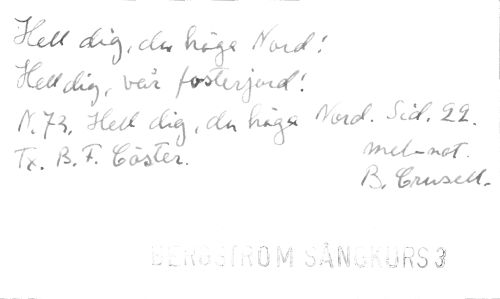 Hell dig, du höga Nord!
Hell dig, vår fosterjord!
N.73. Hell dig, du höga Nord. Sid. 22.
Tx. B. F. Cöster.
mel-not.
B. Crusell.
BERGSTRÖM SÅNGKURS 3